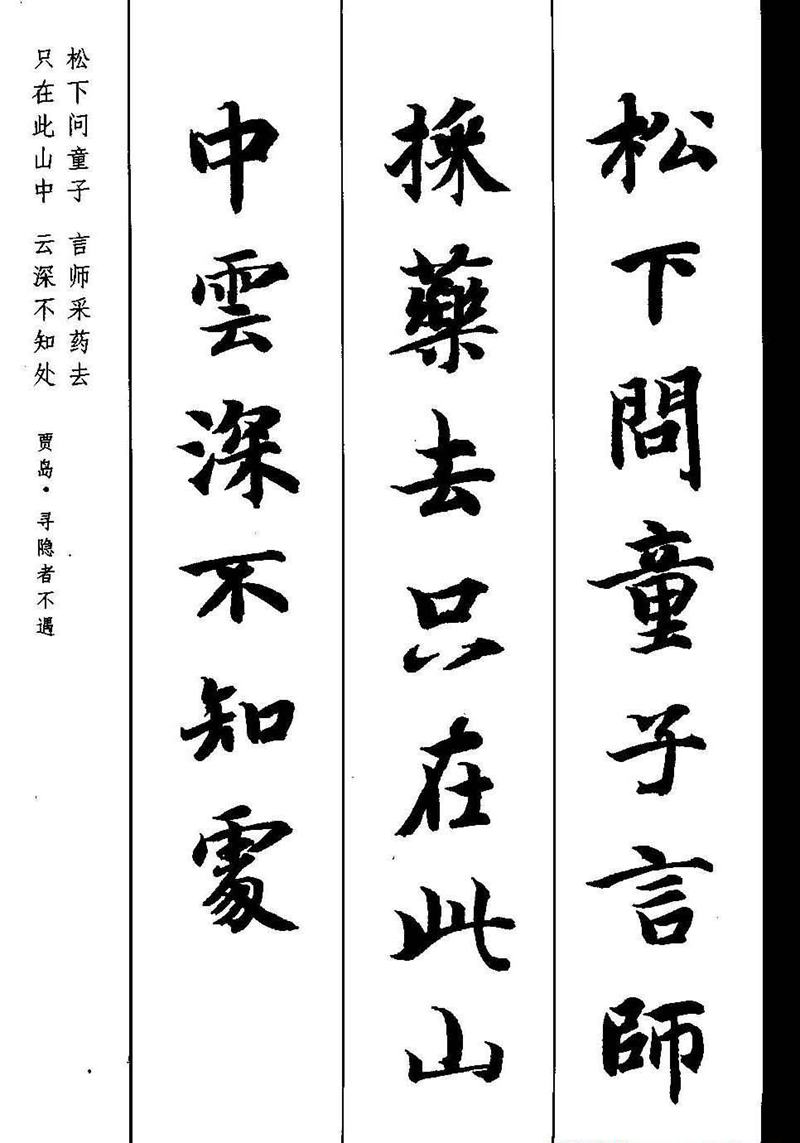 松下問童子言師
採藥去只在此山
中雲深不知處
松下问童子 言师采药去
只在此山中 云深不知处
贾岛·寻隐者不遇